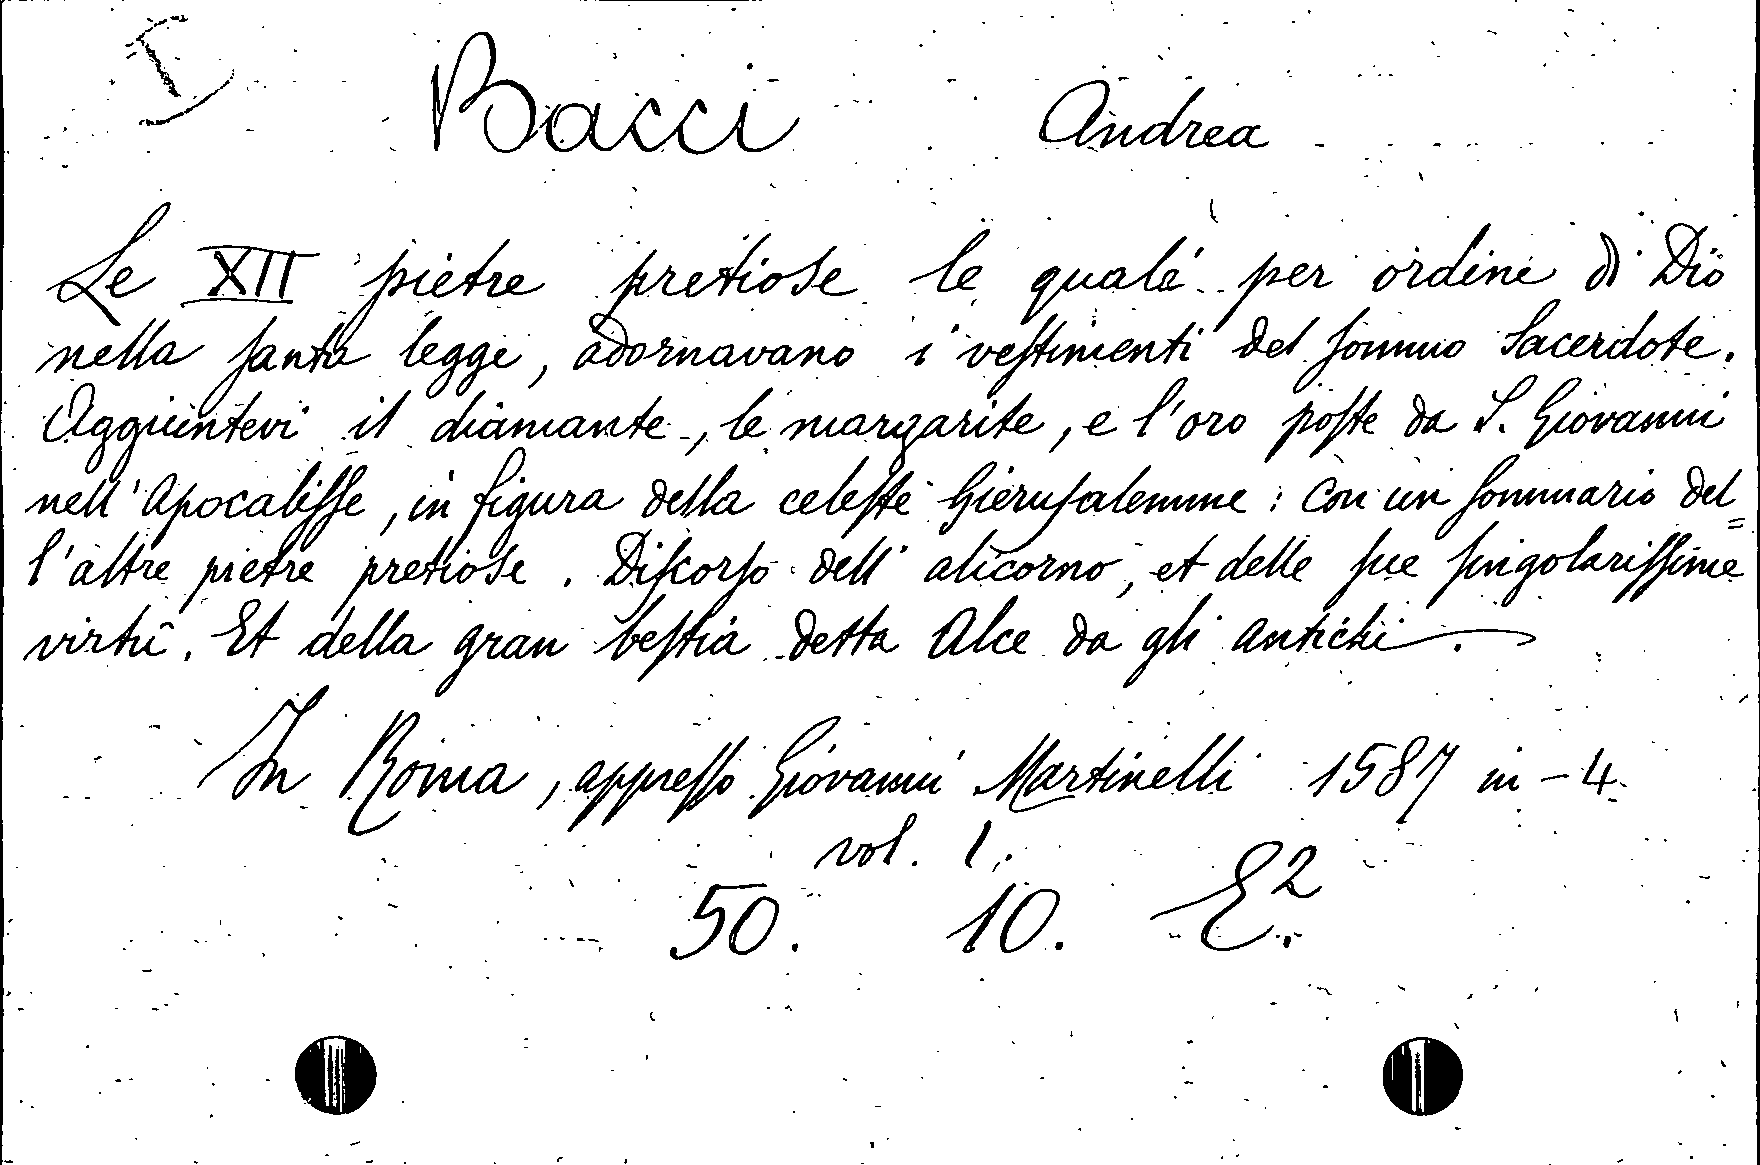 I
Bacci Andrea
Le XII pietre pretiose le quali per ordine di Dio
nella ſanta legge, adornavano i veſtimenti del ſommo Sacerdote.
Aggiuntevi il diamante, le margarite, e l'oro poſte da S. Giovanni
nell'Apocaliſſe, in figura della celeſte Gieruſalemme: Con un ſommario del=
l'altre pietre pretiose. Diſcorſo dell'alicorno, et delle ſue ſingolariſſime
virtù. Et della gran beſtia detta Alce da gli antichi.
In Roma, appreſſo Giovanni Martinelli 1587 in-4
vol. 1.
50. 10. E².